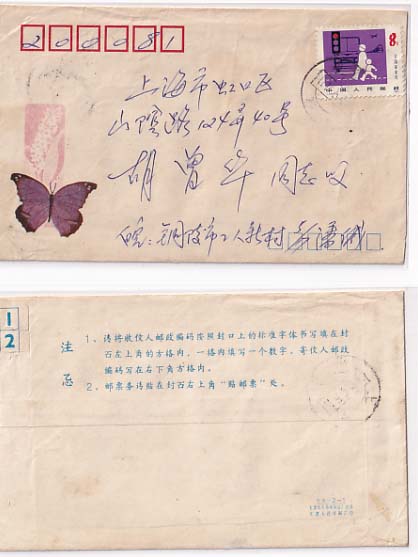 200081
8分
中国人民邮政
上海市虹口区
山阴路124弄40号
胡曾华 同志收
皖:铜陵市工人新村
1
2
注意
1、请将收信人邮政编码按照封口上的标准字体书写填在封
面左上角的方格内,一格内填写一个数字,寄信人邮政
编码写在右下角方格内。
2、邮票务请贴在封面右上角“贴邮票”处。